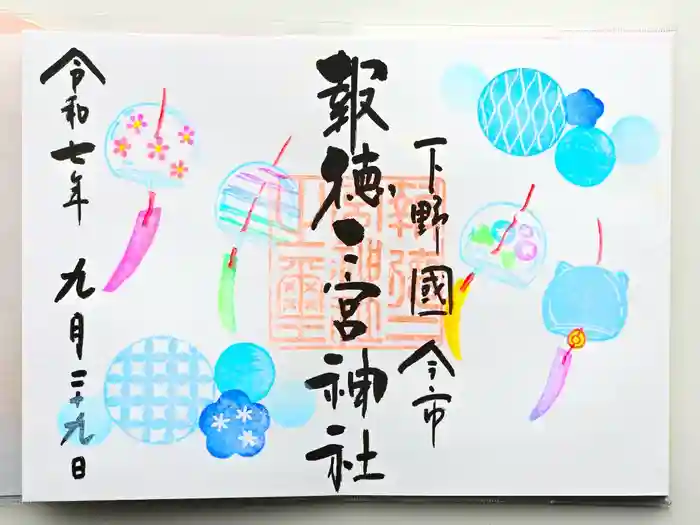 下野國
今市
報徳二宮神社
令和七年
九月二十九日